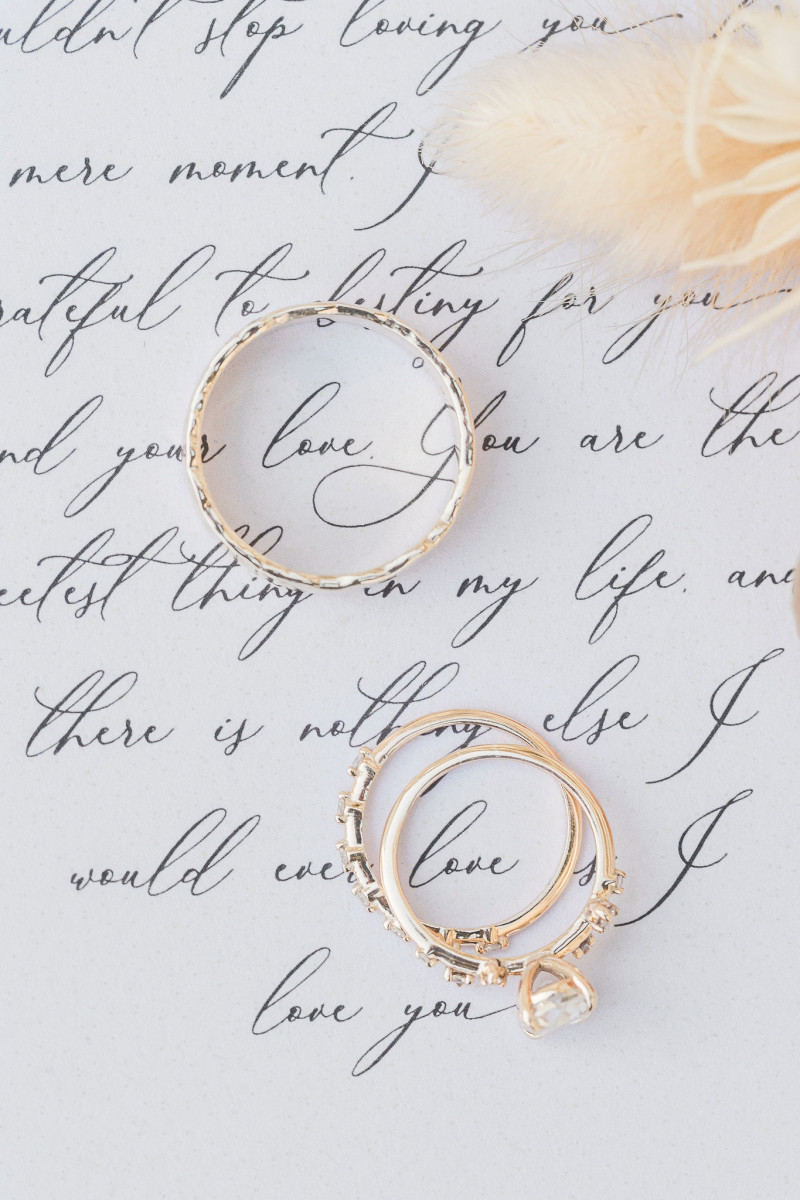 uldn't stop loving you
mere moment. I
rateful to destiny for you
nd your love. You are the
eetest thing in my life. and
there is nothing else I
would ever love so I
love you